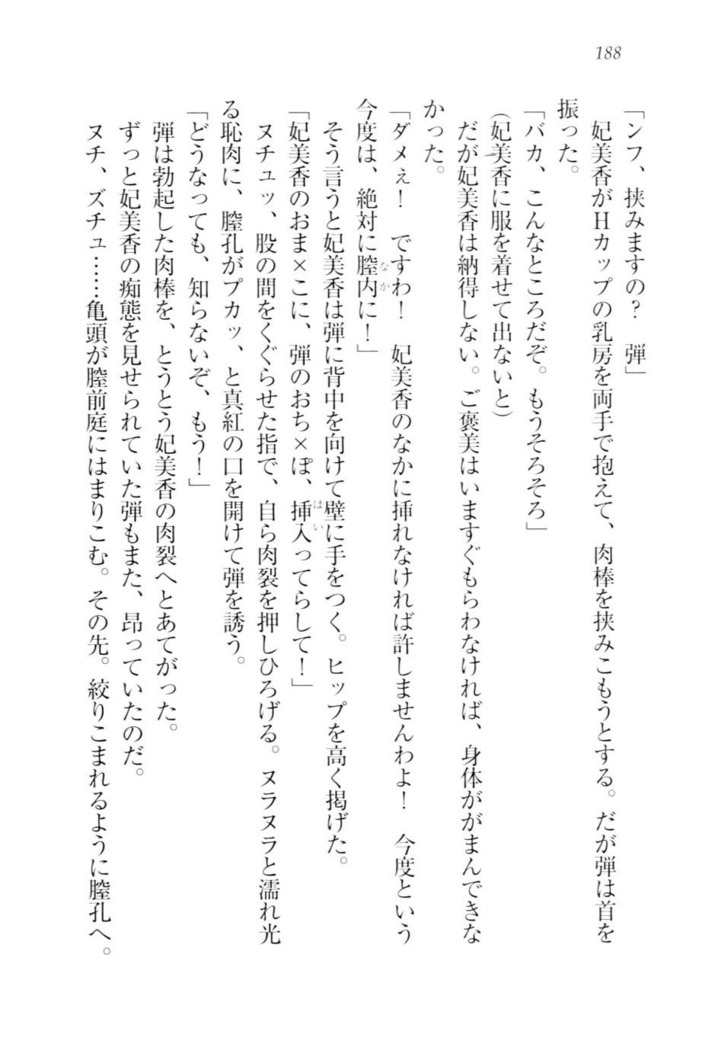 188
「ンフ、挟みますの？　弾」
妃美香がHカップの乳房を両手で抱えて、肉棒を挟みこもうとする。だが弾は首を
振った。
「バカ、こんなところだぞ。もうそろそろ」
(妃美香に服を着せて出ないと)
だが妃美香は納得しない。ご褒美はいますぐもらわなければ、身体ががまんできな
かった。
「ダメぇ！　ですわ！　妃美香のなかに挿れなければ許しませんわよ！　今度という
今度は、絶対に膣内に！」
なか
そう言うと妃美香は弾に背中を向けて壁に手をつく。ヒップを高く掲げた。
「妃美香のおま×こに、弾のおち×ぽ、挿入ってらして！」
はい
ヌチュッ、股の間をくぐらせた指で、自ら肉裂を押しひろげる。ヌラヌラと濡れ光
る恥肉に、膣孔がプカッ、と真紅の口を開けて弾を誘う。
「どうなっても、知らないぞ、もう！」
弾は勃起した肉棒を、とうとう妃美香の肉裂へとあてがった。
ずっと妃美香の痴態を見せられていた弾もまた、昂っていたのだ。
ヌチ、ズチュ……亀頭が膣前庭にはまりこむ。その先。絞りこまれるように膣孔へ。